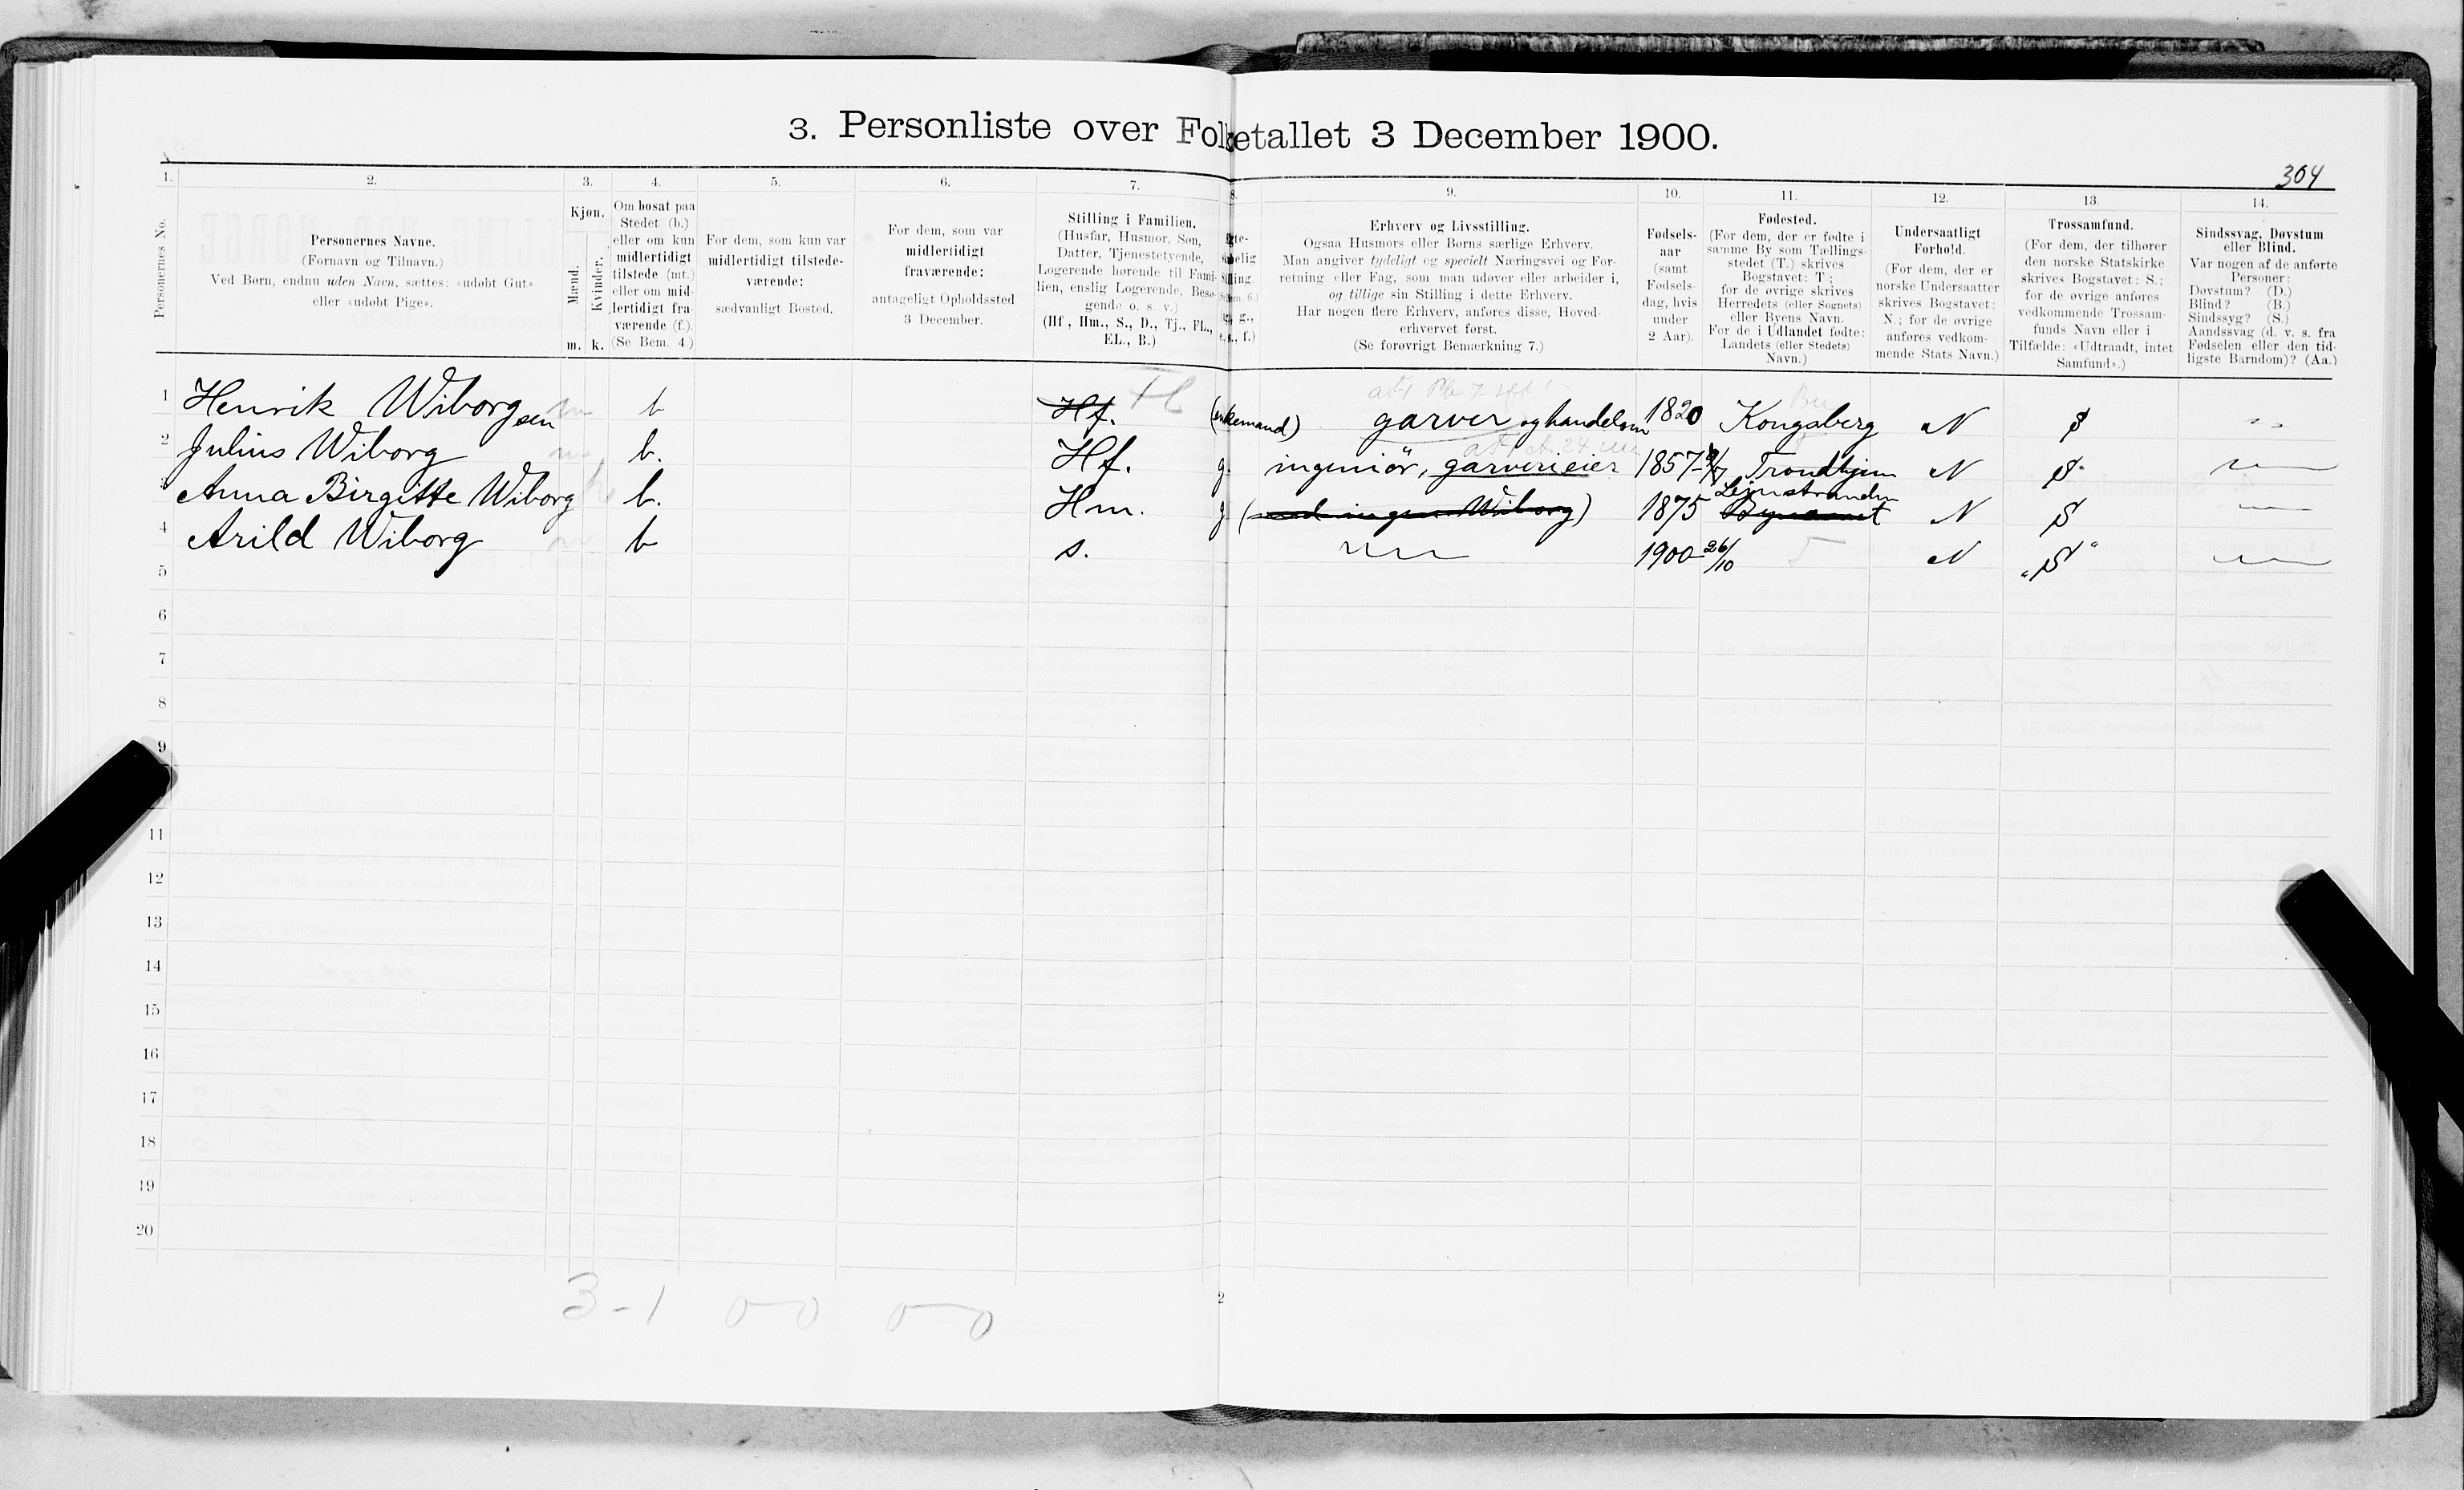 3. Personliste over Folketallet 3 December 1900.
304
1. 2. 3. 4. 5. 6. 7. 8. 9. 10. 11. 12. 13. 14.
Personernes No.
Personernes Navne.
(Fornavn og Tilnavn.)
Ved Børn, endnu uden Navn, sættes: «udøbt Gut»
eller «udøbt Pige».
Kjøn.
Mænd.
Kvinder.
m. k.
Om bosat paa
Stedet (b.)
eller om kun
midlertidigt
tilstede (mt.)
eller om mid-
lertidigt fra-
værende (f.).
(Se Bem. 4.)
For dem, som kun var
midlertidigt tilstede-
værende:
sædvanligt Bosted.
For dem, som var
midlertidigt
fraværende:
antageligt Opholdssted
3 December.
Stilling i Familien.
(Husfar, Husmor, Søn,
Datter, Tjenestetyende,
Logerende hørende til Fami-
lien, enslig Logerende, Besø-
gende o. s. v.)
(Hf., Hm., S., D., Tj., FL.,
EL., B.)
Erhverv og Livsstilling.
Ogsaa Husmors eller Børns særlige Erhverv.
Man angiver tydeligt og specielt Næringsvei og For-
retning eller Fag, som man udøver eller arbeider i,
og tillige sin Stilling i dette Erhverv.
Har nogen flere Erhverv, anføres disse, Hoved-
erhvervet først.
(Se forøvrigt Bemærkning 7.)
Fødsels-
aar
(samt
Fødsels-
dag, hvis
under
2 Aar).
Fødested.
(For dem, der er fødte i
samme By som Tællings-
stedet (T.) skrives
Bogstavet: T;
for de øvrige skrives
Herredets (eller Sognets)
eller Byens Navn.
For de i Udlandet fødte:
Landets (eller Stedets)
Navn.)
Undersaatligt
Forhold.
(For dem, der er
norske Undersaatter
skrives Bogstavet:
N.; for de øvrige
anføres vedkom-
mende Stats Navn.)
Trossamfund.
(For dem, der tilhører
den norske Statskirke
skrives Bogstavet: S.;
for de øvrige anføres
vedkommende Trossam-
funds Navn eller i
Tilfælde: «Udtraadt, intet
Samfund».)
Sindssvag, Døvstum
eller Blind.
Var nogen af de anførte
Personer:
Døvstum? (D.)
Blind? (B.)
Sindssyg? (S.)
Aandssvag (d. v. s. fra
Fødselen eller den tid-
ligste Barndom)? (Aa.)
1 Henrik Wiborg sen m b Hf. Fl (enkemand) garver og handelsm 1820 Kongsberg N S
2 Julius Wiborg m b. Hf. g. ingeniör, garverieier 1857 Trondhjem N S
3 Anna Birgitte Wiborg k b. Hm. g 1875 Lejnstranden N S
4 Arild Wiborg m b s. 1900 26/10 T N "S"
5
6
7
8
9
11
12
13
14
15
16
17
18
19
20
3-1 0-0 0-0
2